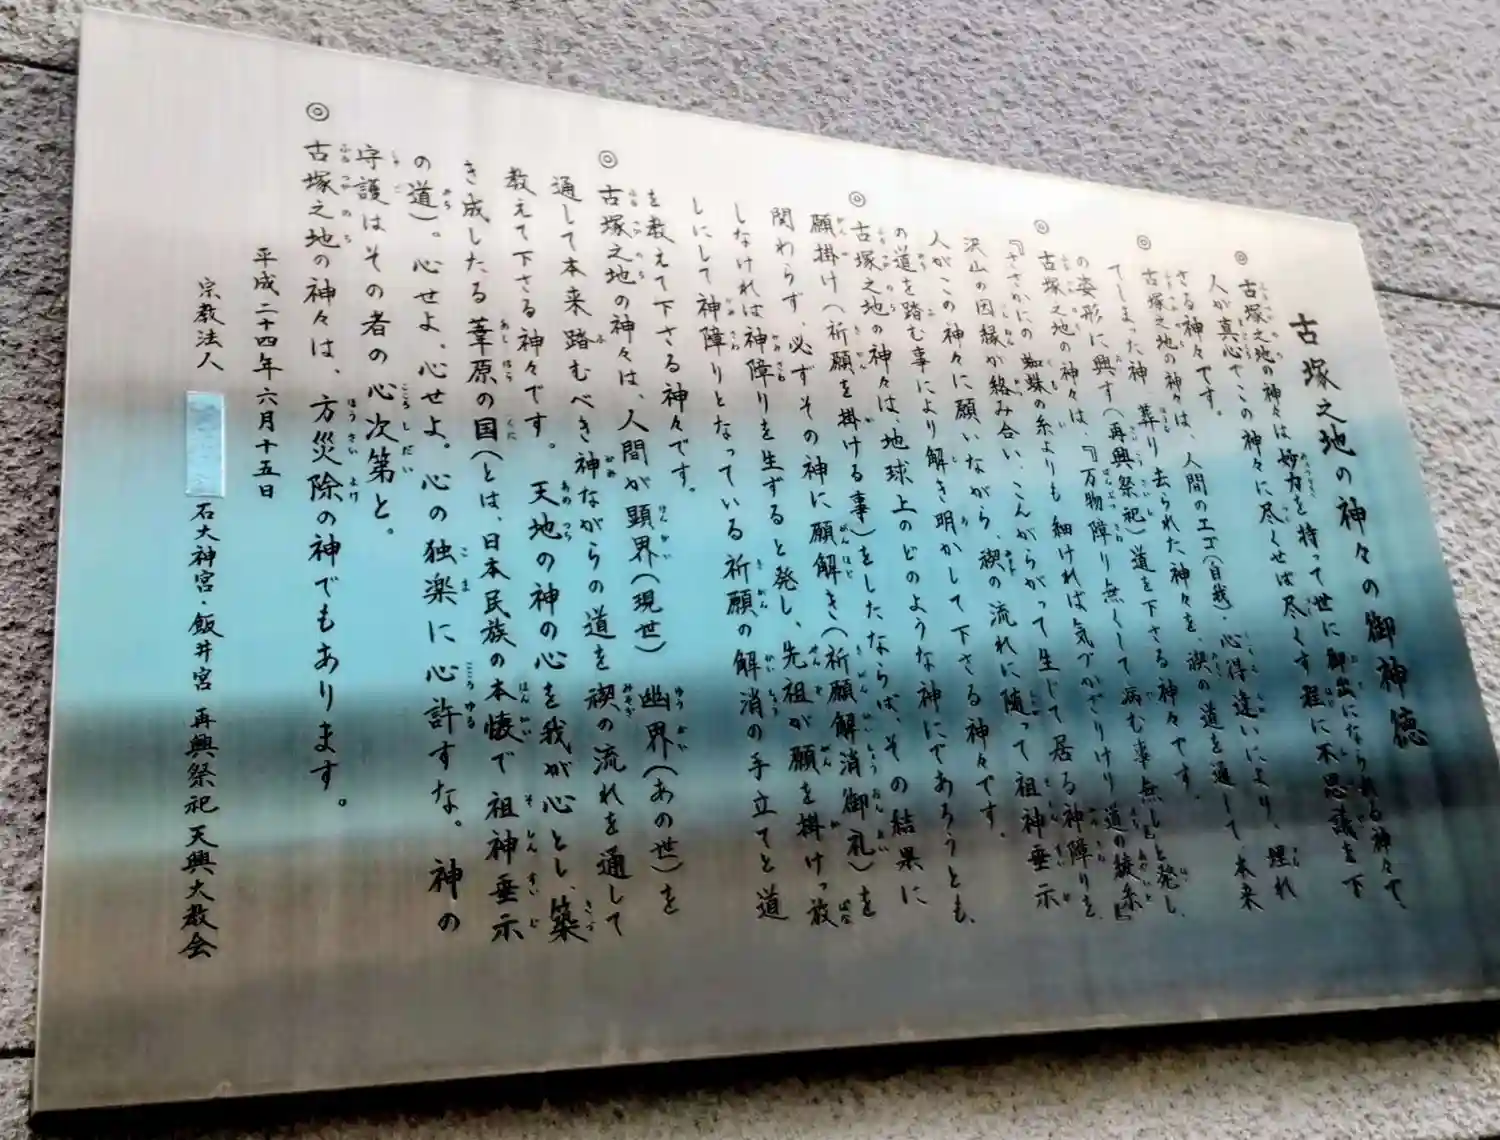 古塚之地の神々の御神徳
◎古塚之地の神々は妙力を持って世に御出になられる神々で、
人が真心でこの神々に尽くせば尽くす程に不思議を下
さる神々です。
◎古塚之地の神々は、人間のエゴ(自我)・心得違いにより、埋れ
てしまった神 葬り去られた神々を、禊の道を通して、本来
の姿形に興す(再興祭祀)道を下さる神々です。
◎古塚之地の神々は、『万物障り無くして病む事無し』と発し、
『ささかにの蜘蛛の糸よりも細ければ気づかざりけり道の綾糸』
沢山の因縁が絡み合い、こんがらがって生じて居る神障りを、
人がこの神々に願いながら、禊の流れに随って祖神垂示
の道を踏む事により解き明かして下さる神々です。
◎古塚之地の神々は、地球上のどのような神にであろうとも、
願掛け(祈願を掛ける事)をしたならば、その結果に
関わらず、必ずその神に願解き(祈願解消御礼)を
しなければ神障りを生ずると発し、先祖が願を掛けっ放
しにして神障りとなっている祈願の解消の手立てと道
を教えて下さる神々です。
◎古塚之地の神々は、人間が顕界(現世) 幽界(あの世)を
通して本来踏むべき神ながらの道を禊の流れを通して
教えて下さる神々です。天地の神の心を我が心とし、築
き成したる葦原の国(とは、日本民族の本懐で祖神垂示
の道)。心せよ、心せよ。心の独楽に心許すな。神の
守護はその者の心次第と。
◎古塚之地の神々は、方災除の神でもあります。
平成二十四年六月十五日
宗教法人 石大神宮・飯井宮 再興祭祀 天興大教会